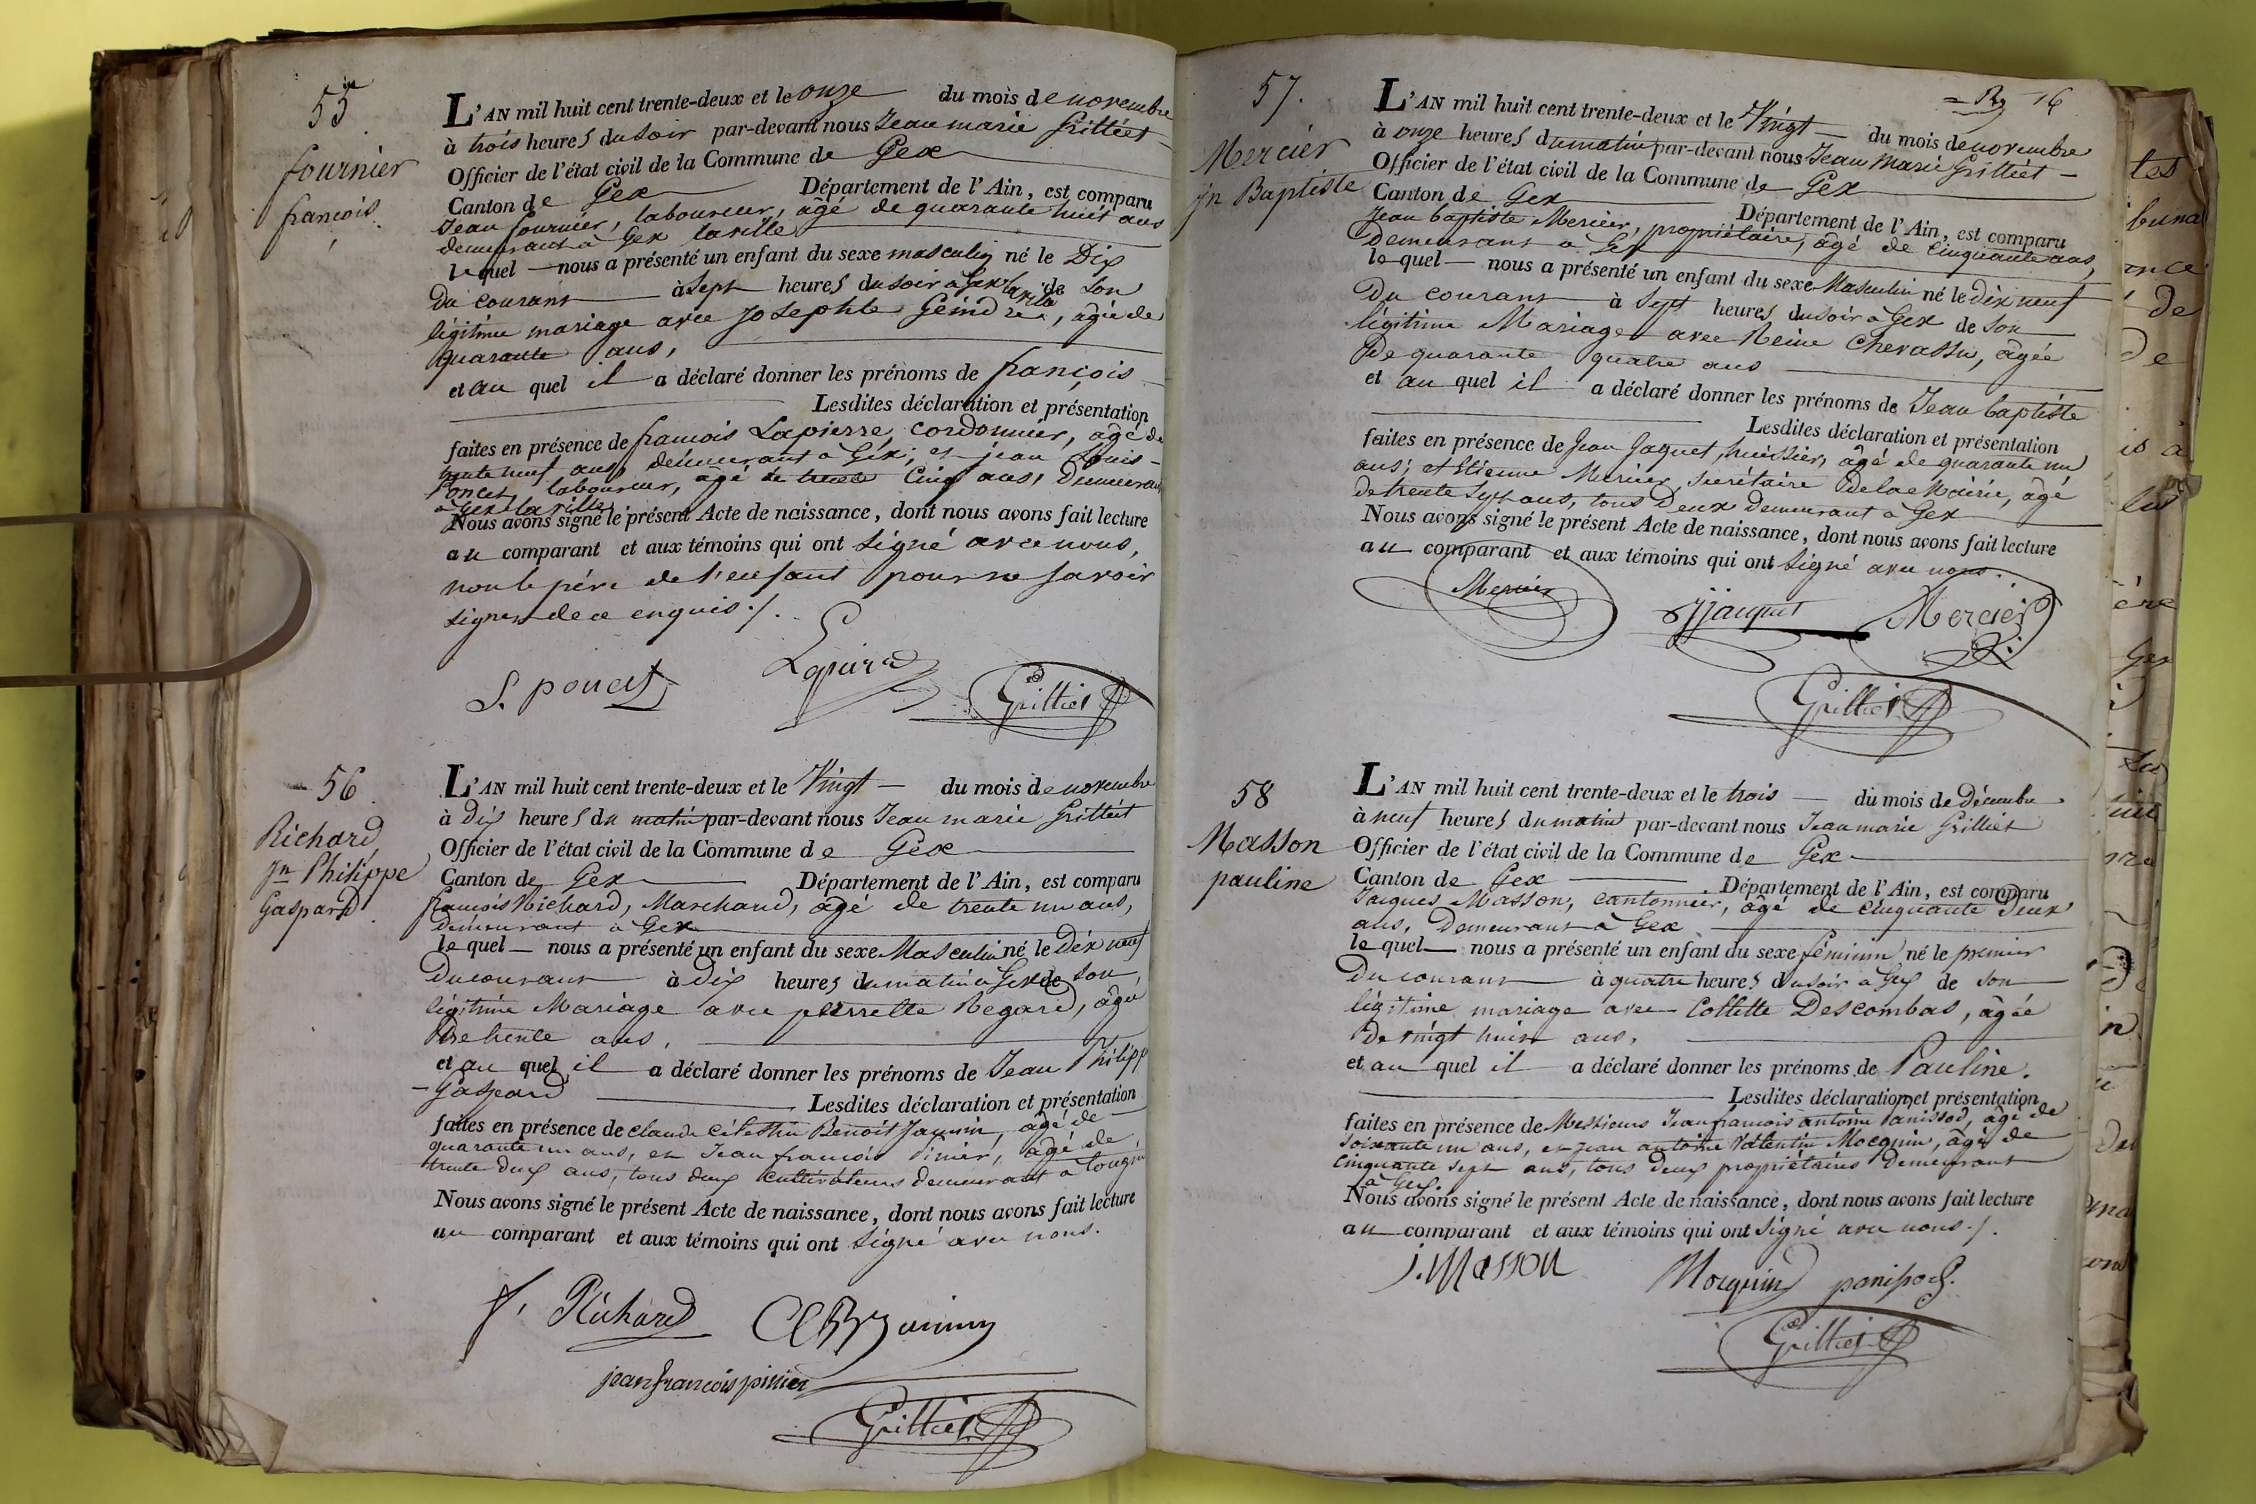 55
fournier
françois.
L'AN mil huit cent trente-deux et le onze du mois de novembre
à trois heures du soir par-devant nous Jean marie Grilliet
Officier de l'état civil de la Commune de Gex
Canton de Gex Département de l'Ain, est comparu
Jean fournier, laboureur, âgé de quarante huit ans
demeurant à Gex la ville
lequel nous a présenté un enfant du sexe masculin né le Dix
du courant à sept heures du soir à Gex la ville de son
légitime mariage avec Josephte Geindre, âgée de
quarante ans,
et au quel il a déclaré donner les prénoms de françois
Lesdites déclaration et présentation
faites en présence de françois Lapierre, cordonnier, âgé de
trente neuf ans, demeurant à Gex; et jean Louis
Poncet, laboureur, âgé de trente cinq ans, demeurant
à Gex la ville
Nous avons signé le présent Acte de naissance, dont nous avons fait lecture
au comparant et aux témoins qui ont signé avec nous,
non le père de l'enfant pour ne savoir
signer de ce enquis ./.
L. poncet
Lapierre
Grilliet
56
Richard
Jn Philippe
Gaspard
L'AN mil huit cent trente-deux et le Vingt du mois de novembre
à Dix heures du matin par-devant nous Jean marie Grilliet
Officier de l'état civil de la Commune de Gex
Canton de Gex Département de l'Ain, est comparu
françois Richard, Marchand, âgé de trente un ans,
demeurant à Gex
lequel nous a présenté un enfant du sexe Masculin né le Dix neuf
Du courant à Dix heures du matin à Gex de son
légitime Mariage avec pierrette Regard, âgée
De trente ans,
et au quel il a déclaré donner les prénoms de Jean Philipp
Gaspard Lesdites déclaration et présentation
faites en présence de Claude Célestin Benoit Jaunin, âgé de
quarante un ans, et Jean françois Pinier, âgé de
trente deux ans, tous deux cultivateurs demeurant à tougin
Nous avons signé le présent Acte de naissance, dont nous avons fait lecture
au comparant et aux témoins qui ont signé avec nous.
f. Richard
jean francois pinier
Grilliet
16
57.
Mercier
Jn Baptiste
L'AN mil huit cent trente-deux et le Vingt du mois de novembre
à onze heures du matin par-devant nous Jean Marie Grilliet
Officier de l'état civil de la Commune de Gex
Canton de Gex Département de l'Ain, est comparu
Jean baptiste Mercier, propriétaire, âgé de cinquante ans,
Demeurant à Gex
lequel nous a présenté un enfant du sexe Masculin né le dix neuf
Du courant à sept heures du soir à Gex de son
légitime Mariage avec Reine Chevassu, âgée
De quarante quatre ans
et au quel il a déclaré donner les prénoms de Jean baptiste
Lesdites déclaration et présentation
faites en présence de Jean Jaquet, huissier, âgé de quarante un
ans; et Etienne Mercier, secrétaire de la Mairie, âgé
de trente sept ans, tous Deux demeurant à Gex
Nous avons signé le présent Acte de naissance, dont nous avons fait lecture
au comparant et aux témoins qui ont signé avec nous.
Mercier
jjacquet
Mercier
Grilliet
58
Masson
pauline
L'AN mil huit cent trente-deux et le trois du mois de Décembre
à neuf heures du matin par-devant nous Jean marie Grilliet
Officier de l'état civil de la Commune de Gex
Canton de Gex Département de l'Ain, est comparu
Jacques Masson, cantonnier, âgé de cinquante Deux
ans, Demeurant à Gex
lequel nous a présenté un enfant du sexe féminin né le premier
Du courant à quatre heures du soir à Gex de son
légitime mariage avec Collette Descombas, âgée
De vingt huit ans,
et au quel il a déclaré donner les prénoms de Pauline.
Lesdites déclaration et présentation
faites en présence de Messieurs Jean françois antoine Panissod, âgé de
soixante un ans, et jean antoine Valentin Mocquin, âgé de
cinquante sept ans, tous deux propriétaires demeurant
à Gex.
Nous avons signé le présent Acte de naissance, dont nous avons fait lecture
au comparant et aux témoins qui ont signé avec nous ./.
j. Masson
Mocquin
panissod.
Grilliet